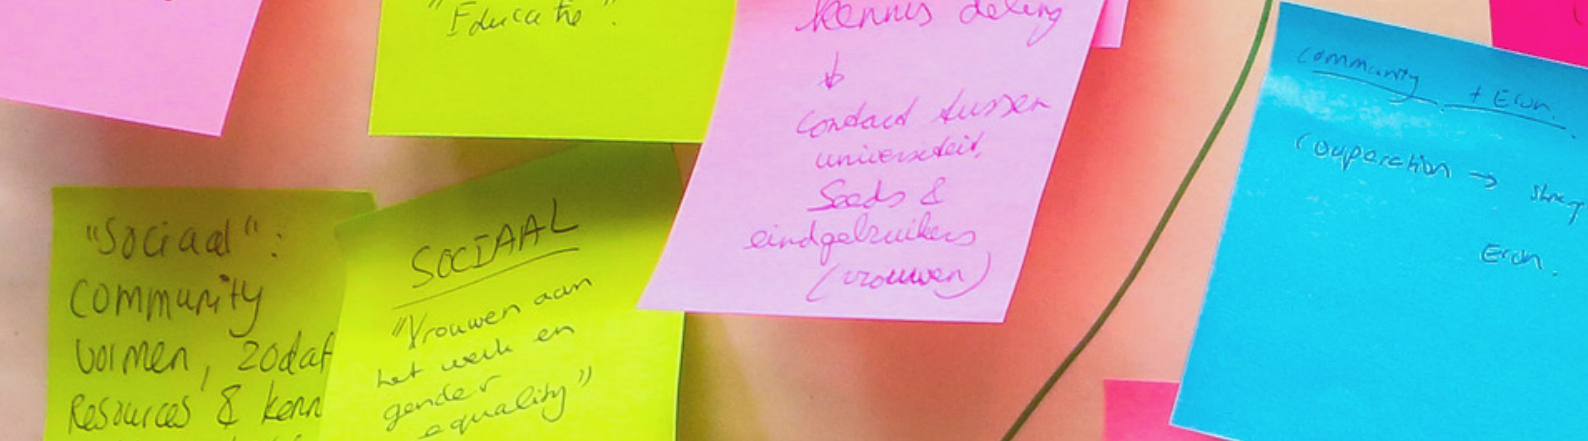 "Educatie".
kennis deling
↓
contact tussen
universiteit,
Seeds &
eindgebruikers
(vrouwen)
community + Econ.
Cooperation →
Econ.
"Sociaal":
Community
vormen, zodat
Resources & kenn
SOCIAAL
"Vrouwen aan
het werk en
gender
equality"